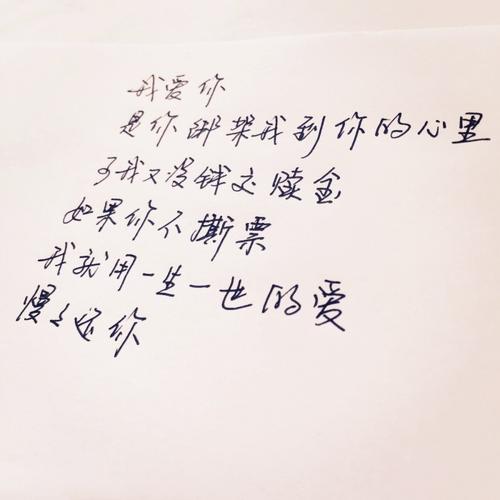 我爱你
是你绑架我到你的心里
可我又没钱交赎金
如果你不撕票
我就用一生一世的爱
慢慢还你